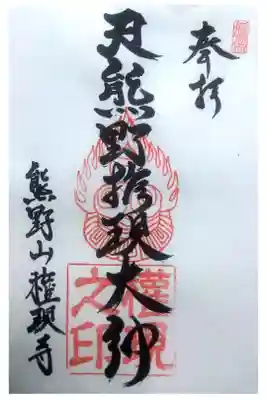 奉拝
天熊野権現大神
権現
之印
熊野山権現寺